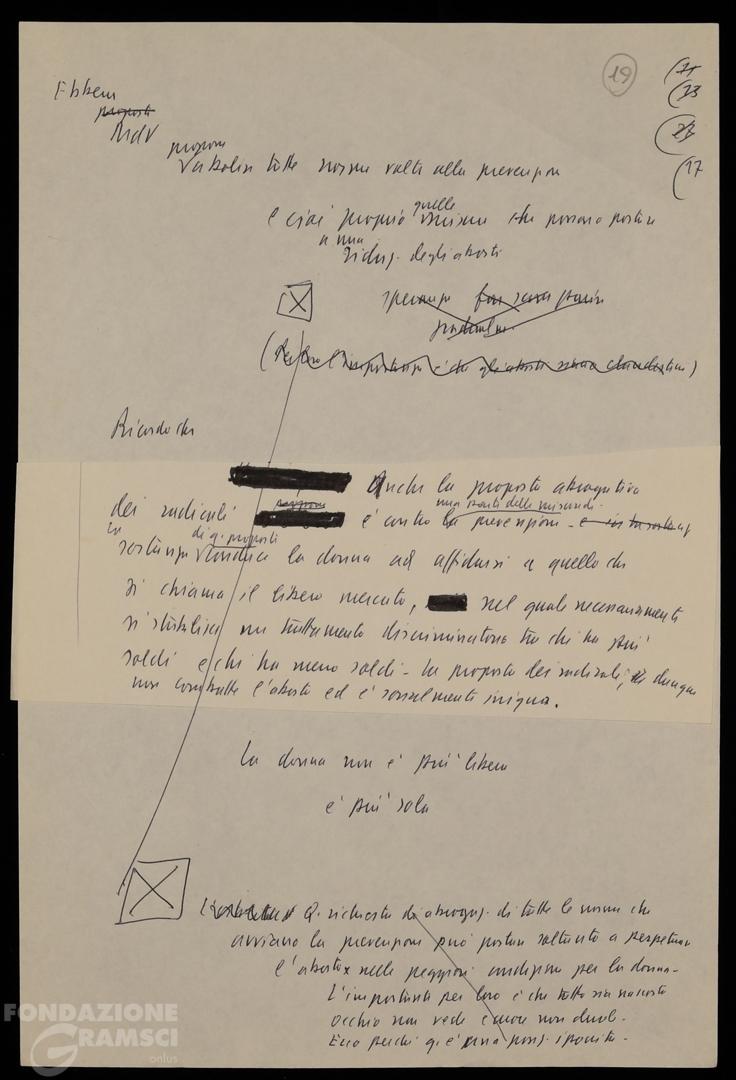 19
Ebbene
proposta
MdV
propone
abolire tutte norme volte alla prevenzione
e cioè proprio quelle misure che possono portare
a una
riduz. degli aborti
speranza
(Per loro l'importante è che gli aborti siano clandestini)
Ricordo che
Anche la proposta abrogativa
dei radicali è contro la prevenzione -
in sostanza di q. proposta la donna ad affidarsi a quello che
si chiama il libero mercato, nel quale necessariamente
si stabilisce un trattamento discriminatorio tra chi ha più
soldi e chi ha meno soldi - La proposta dei radicali, dunque
non combatte l'aborto ed è socialmente iniqua.
La donna non è più libera
è più sola
Q. richiesta di abrogaz. di tutte le norme che
avviano la prevenzione può portare soltanto a perpetuare
l'aborto nelle peggiori condizioni per la donna -
L'importante per loro è che tutto sia nascosto
occhio non vede cuore non duole -
Ecco perché q. è una posiz. ipocrita -
FONDAZIONE
GRAMSCI
onlus